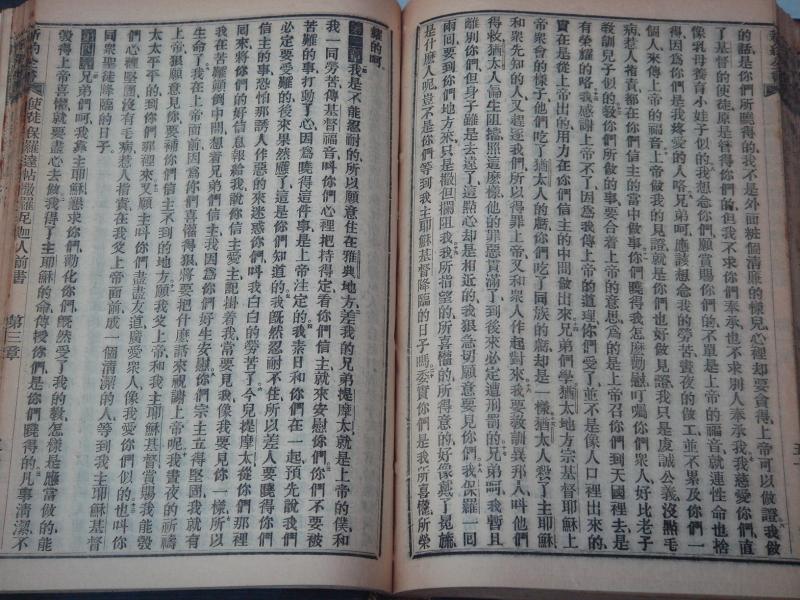 新約全書
的話是你們所聽得的我不是外面粧個清廉的樣兒心裡却要貪得上帝可以做證我做
基督的使徒原是管得你們的但我不求你們奉承也不求別人奉承我我慈愛你們直
像乳母養育小娃子似的我想念你們願賞賜你們的不單是上帝的福音就連性命也捨
得因爲你們是我疼愛的人咯兄弟呵應該想念我的勞苦晝夜的做工並不累及你們一
個人來傳上帝的福音上帝做我的見證就是你們也好做見證我只是虔誠公義沒點毛
病惹人指責都在你們信主的當中做事你們曉得我怎麽勸慰叮囑你們衆人好比老子
教訓兒子似的教你們所做的事要合着上帝的意思爲的是上帝召你們到天國裡去是
有榮耀的咯我感謝上帝不了因爲我傳上帝的道理你們受了並不是像人口裡出來的
實在是從上帝出的用力在你們信主的中間做出來兄弟們學猶太地方宗基督耶穌上
帝衆會的樣子他們吃了猶太人的虧你們吃了同族的虧却是一樣猶太人殺了主耶穌
和衆先知的人又趕逐我們所以得罪上帝又和衆人作起對來我要教訓異邦人叫他們
得救猶太人偏生阻擋照這麽樣他的罪惡貫滿了到後來必定遭刑罰的兄弟呵我暫且
離別你們但身子雖是去遠了這點心却是相近的我狠急切願意要見你們我保羅一回
兩回要到你們地方來只是撒但攔阻我我所指望的所喜權的所得意的好像戴了冕旒
是什麽人呢豈不是你們等到我主耶穌基督降臨的日子嗎委實你們是我所喜權所榮
耀的呵
第三章我是不能忍耐的所以願意住在雅典地方差我的兄弟提摩太就是上帝的僕和
我一同勞苦傳基督福音叫你們心裡把持得定看你們信主就來安慰你們你們不要被
苦難的事打動了心因爲曉得這件事是上帝注定的我素日和你們在一起預先說我們
必定要受難的後來果然應了這是你們知道的我旣然忍耐不住所以差人要曉得你們
信主的事恐怕那誘人作惡的來迷惑你們叫我白白的勞苦了今兒提摩太從你們那裡
回來將你們的好信息報給我說你信主愛主記掛着我常要見我像我要見你一樣所以
我在苦難顚倒中間想着兄弟們信主我因爲你們好生安慰你們宗主立得堅固我就有
生命了我在上帝面前因爲你們喜權得狠將要把什麽話來祝謝上帝呢我晝夜的祈禱
上帝狠願意見你要補你們信主不到的地方願我爻上帝和我主耶穌基督賞賜我能彀
太太平平的到你們那裡來又願主叫你們盡盡友道廣愛衆人像我愛你們似的也叫你
們心裡堅固沒有毛病惹人指責在我爻上帝面前成一個清潔的人等到我主耶穌基督
同衆聖徒降臨的日子
第四章兄弟們呵我靠主耶穌懇求你們勸化你們旣然受了我的教怎樣是應當做的能
彀得上帝喜權就要盡心去做我得了主耶穌的命傳授你們是你們曉得的凡事清潔不
新約全書 使徒保羅達帖撒羅尼迦人前書 第三章